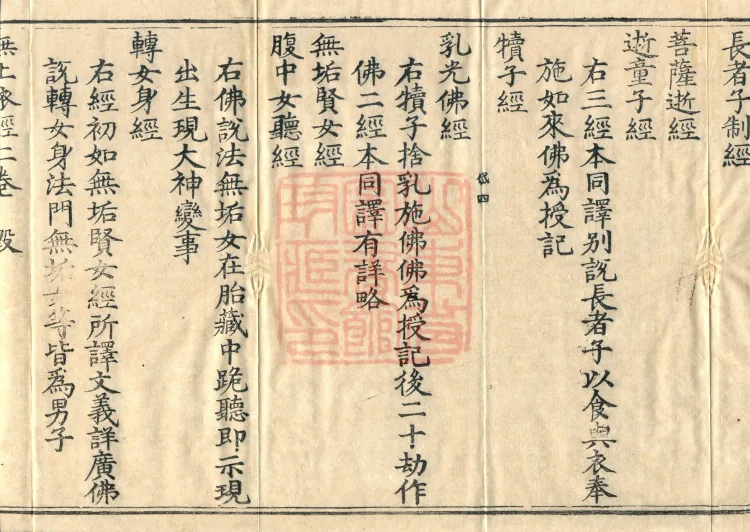 長者子制經
菩薩逝經
逝童子經
右三經本同譯別說長者子以食與衣奉
施如來佛爲授記
犢子經
四
乳光佛經
右犢子捨乳施佛佛爲授記後二十劫作
佛二經本同譯有詳略
無垢賢女經
腹中女聽經
右佛說法無垢女在胎藏中跪聽即示現
出生現大神變事
轉女身經
右經初如無垢賢女經所譯文義詳廣佛
說轉女身法門無垢女等皆爲男子
無上依經二卷